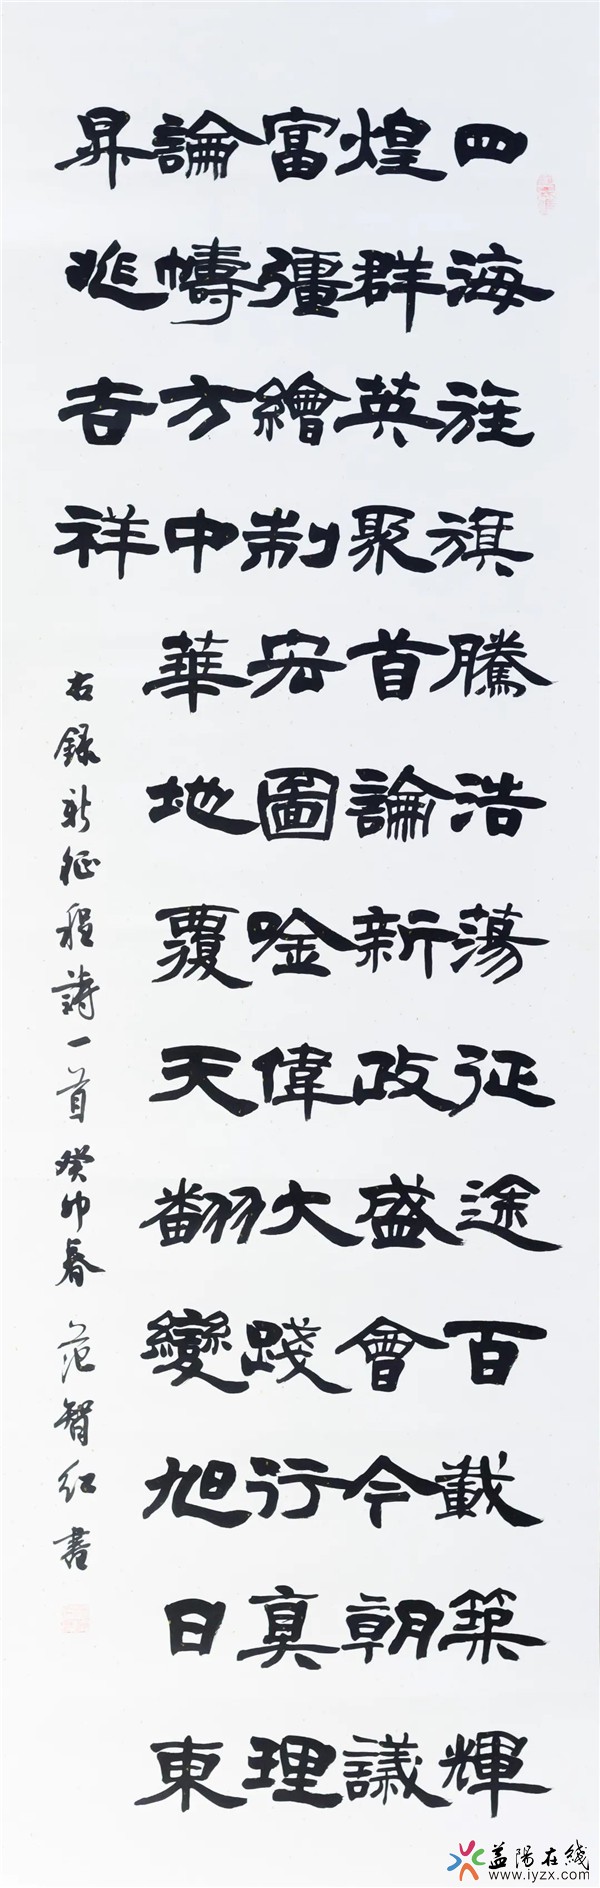 四海旌旗騰浩蕩征途百載築輝
煌群英聚首論新政盛會今朝議
富彊繪制宏圖唫偉大踐行真理
論幬方中華地覆天翻變旭日東
昇兆吉祥
右録新征程詩一首癸卯春 范智红書
益陽在线
www.iyzx.com